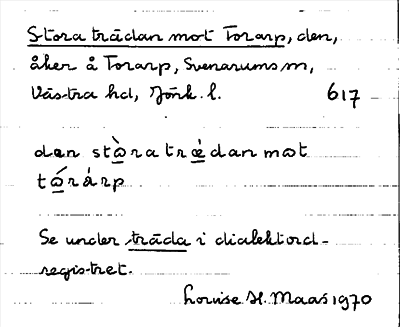 Stora trädan mot Torarp, den,
åker å Torarp, Svenarums sn,
Västra hd, Jönk. l. 617
den stò̲ra trǽ̲dan mot
tó̲rárp
Se under träda i dialektord-
registret.
Louise H. Maas 1970